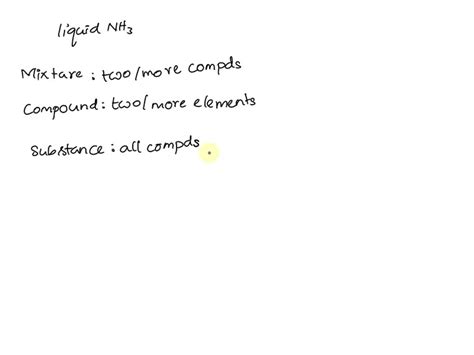 liquid NH3
Mixtare : two/more compds
Compound : two/more elements
Substance : all compds